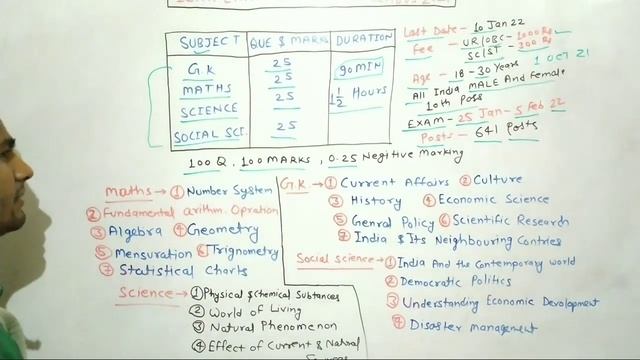 SUBJECT QUE $ MARK DURATION
G.K 25 90 MIN
MATHS 25 1 1/2 HOURS
SCIENCE 25
SOCIAL SCI. 25
Last Date - 10 Jan 22
Fee - UR/OBC - 1000 Rs
SC/ST - 200 Rs
Age - 18 - 30 Years 1 OCT 21
All India MALE And Female
10th Pass
EXAM - 25 Jan - 5 Feb 22
Posts - 641 Posts
100 Q, 100 MARKS, 0.25 Negitive Marking
Maths → ① Number System
② Fundamental arithm. Opration
③ Algebra ④ Geometry
⑤ Mensuration ⑥ Trignometry
⑦ Statistical Charts
Science → ① Physical $ Chemical Substances
② World of Living
③ Natural Phenomenon
④ Effect of Current & Natural
G.K. → ① Current Affairs ② Culture
③ History ④ Economic Science
⑤ Genral Policy ⑥ Scientific Research
⑦ India $ Its Neighbouring Contries
Social Science → ① India And the Contemporary world
② Democratic Politics
③ Understanding Economic Devolopment
④ Disaster management